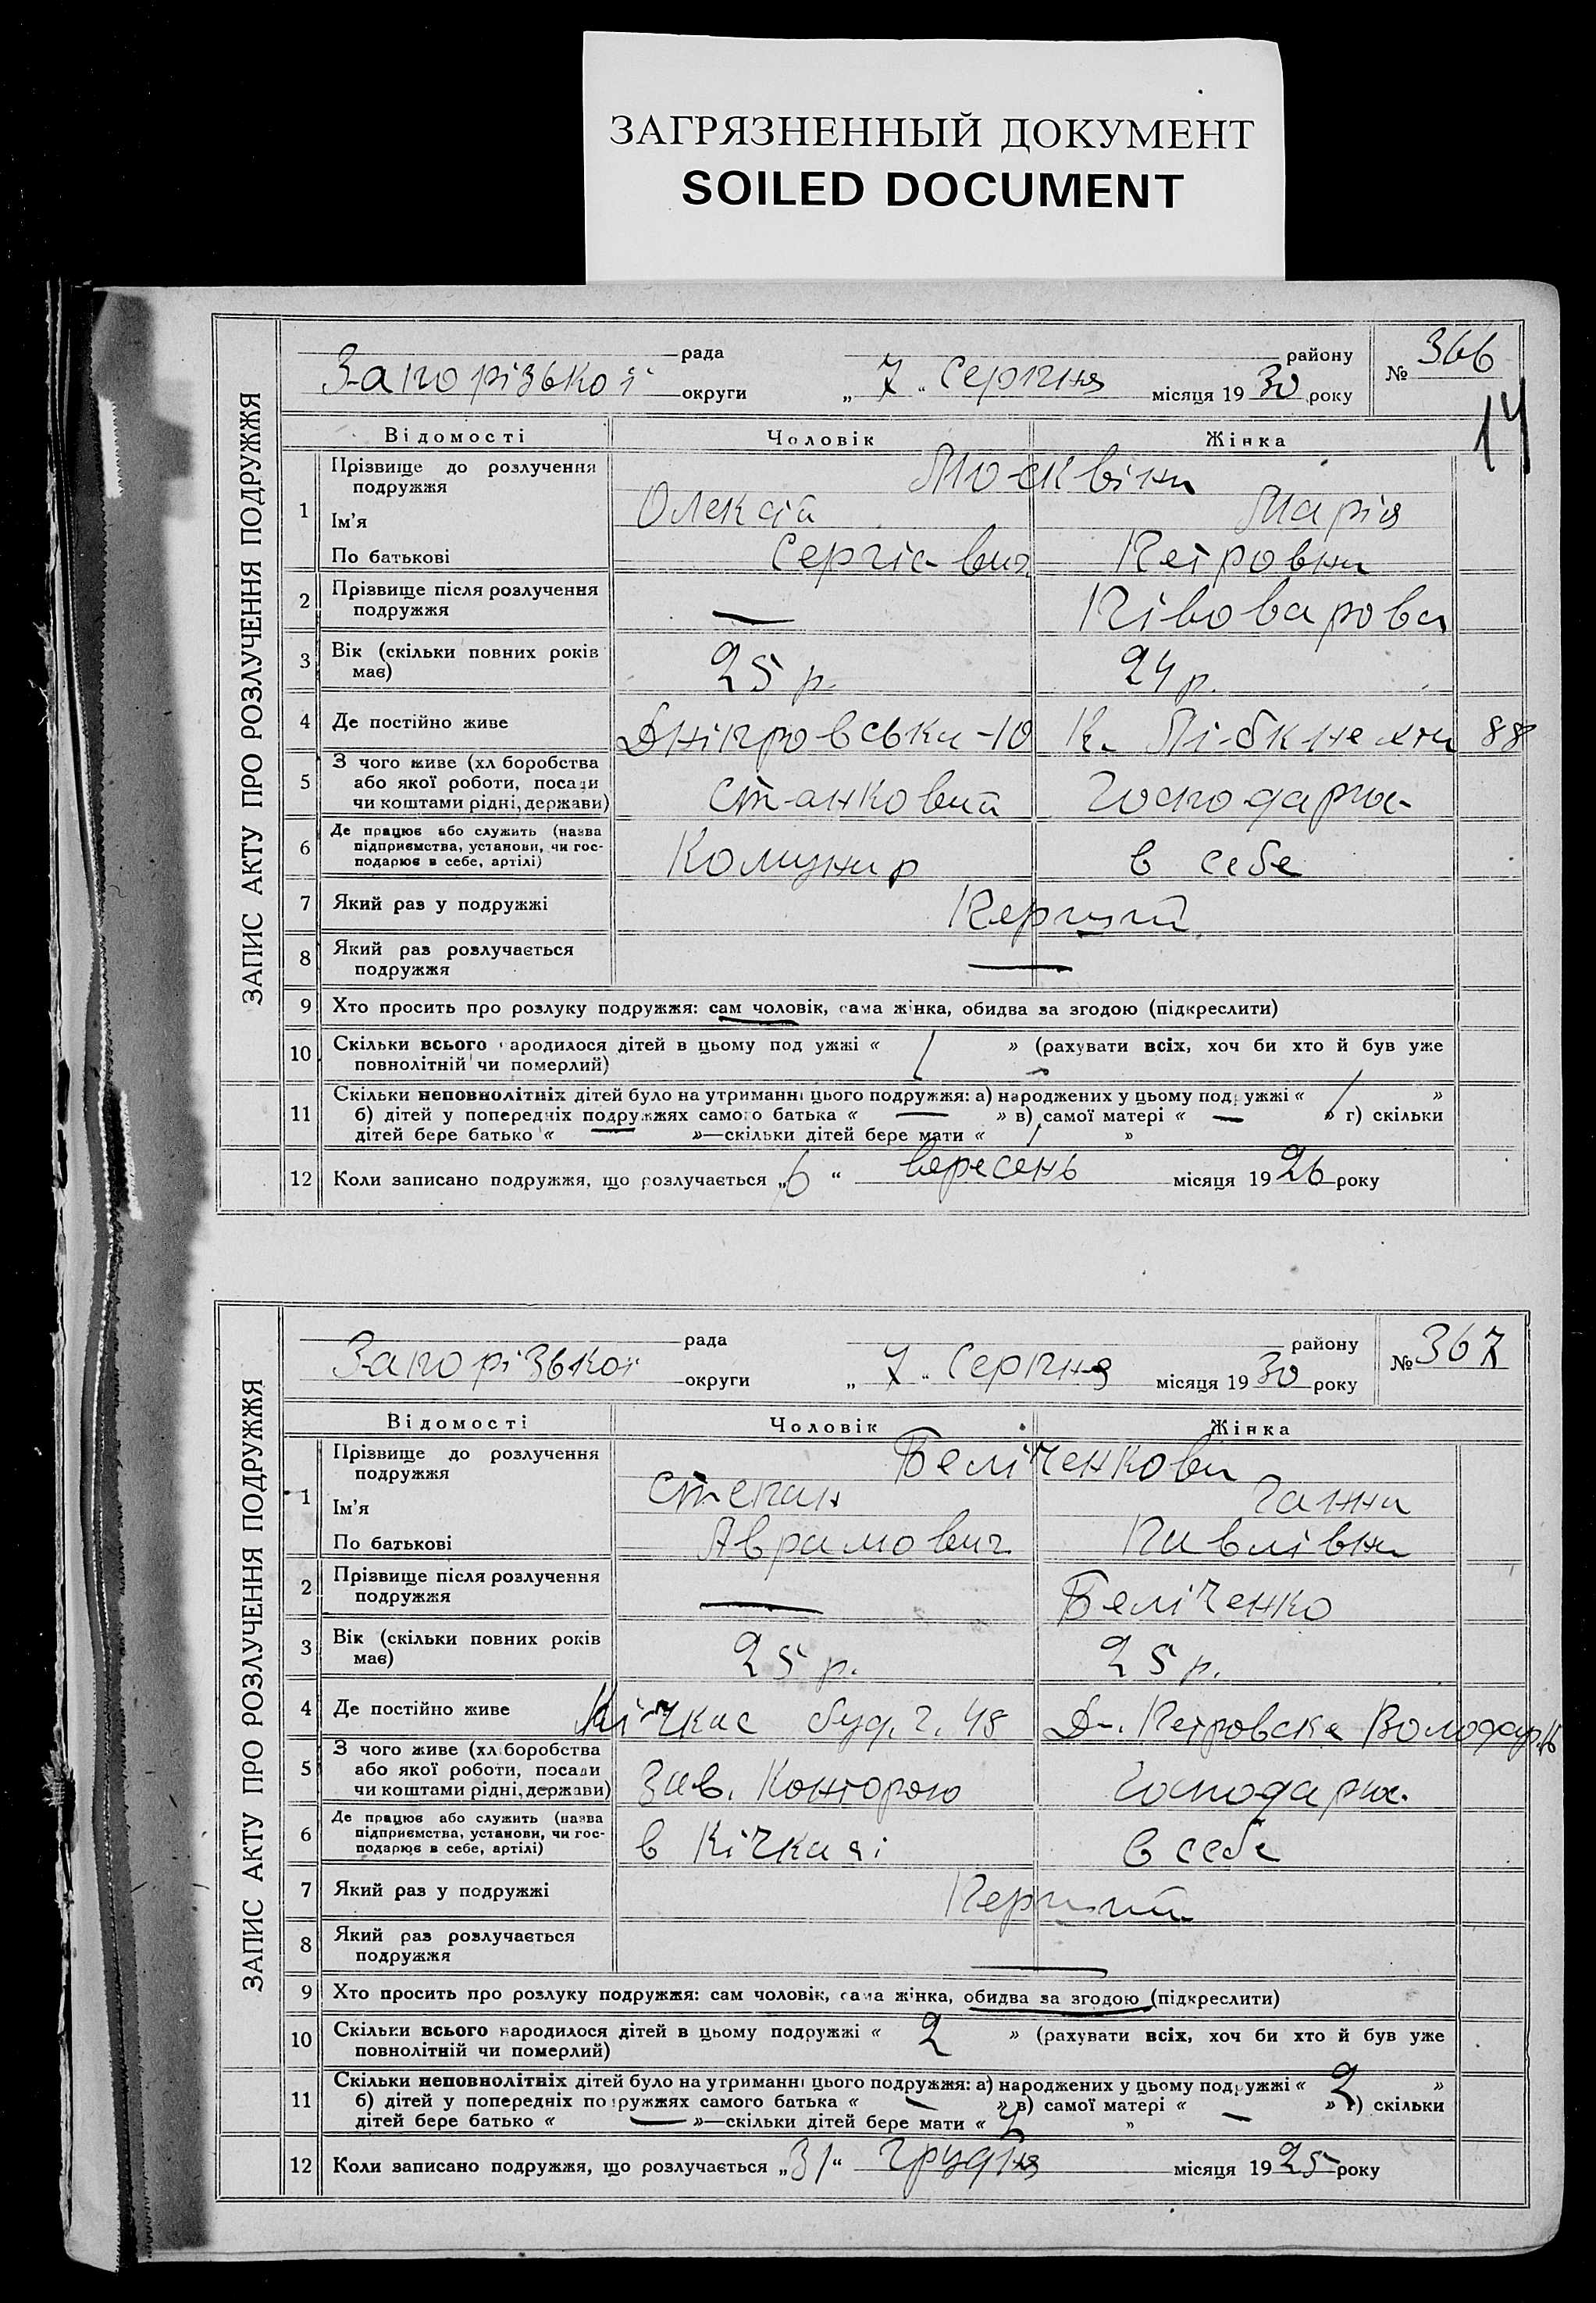 ЗАГРЯЗНЕННЫЙ ДОКУМЕНТ
SOILED DOCUMENT
ЗАПИС АКТУ ПРО РОЗЛУЧЕННЯ ПОДРУЖЖЯ
рада району № 366
Запорізької округи „ 7 “ Серпня місяця 19 30 року
14
Відомості Чоловік Жінка
1 Прізвище до розлучення Москвіни
подружжя
Ім’я Олексій Марія
По батькові Сергієвич Петровна
2 Прізвище після розлучення — Півоварова
подружжя
3 Вік (скільки повних років 25 р. 24 р.
має)
4 Де постійно живе Дніпровська-10 К. Лібкнехта 88
5 З чого живе (хліборобства
або якої роботи, посади Становий Господарка
чи коштами рідні, держави)
6 Де працює або служить (назва
підприємства, установи, чи гос- Комунар в себе
подарює в себе, артілі)
7 Який раз у подружжі Перший
8 Який раз розлучається —
подружжя
9 Хто просить про розлуку подружжя: сам чоловік, сама жінка, обидва за згодою (підкреслити)
10 Скільки всього народилося дітей в цьому подружжі « 1 » (рахувати всіх, хоч би хто й був уже
повнолітній чи померлий)
11 Скільки неповнолітніх дітей було на утриманні цього подружжя: а) народжених у цьому подружжі « 1 »
б) дітей у попередніх подружжях самого батька « — » в) самої матері « — » г) скільки
дітей бере батько « — »—скільки дітей бере мати « 1 »
12 Коли записано подружжя, що розлучається „ 6 “ вересень місяця 19 26 року
ЗАПИС АКТУ ПРО РОЗЛУЧЕННЯ ПОДРУЖЖЯ
рада району № 367
Запорізької округи „ 7 “ Серпня місяця 19 30 року
Відомості Чоловік Жінка
1 Прізвище до розлучення Беліченкови
подружжя
Ім’я Степан Ганна
По батькові Аврамович Павлівна
2 Прізвище після розлучення — Беліченко
подружжя
3 Вік (скільки повних років 25 р. 25 р.
має)
4 Де постійно живе Кічкас буд. ч. 48 Дн. Петровська
5 З чого живе (хліборобства
або якої роботи, посади Зав. Конторою Господарка
чи коштами рідні, держави)
6 Де працює або служить (назва
підприємства, установи, чи гос- в Кічкасі в себе
подарює в себе, артілі)
7 Який раз у подружжі Перший
8 Який раз розлучається —
подружжя
9 Хто просить про розлуку подружжя: сам чоловік, сама жінка, обидва за згодою (підкреслити)
10 Скільки всього народилося дітей в цьому подружжі « 2 » (рахувати всіх, хоч би хто й був уже
повнолітній чи померлий)
11 Скільки неповнолітніх дітей було на утриманні цього подружжя: а) народжених у цьому подружжі « 2 »
б) дітей у попередніх подружжях самого батька « — » в) самої матері « — » г) скільки
дітей бере батько « — »—скільки дітей бере мати « 2 »
12 Коли записано подружжя, що розлучається „ 31 “ грудня місяця 19 25 року